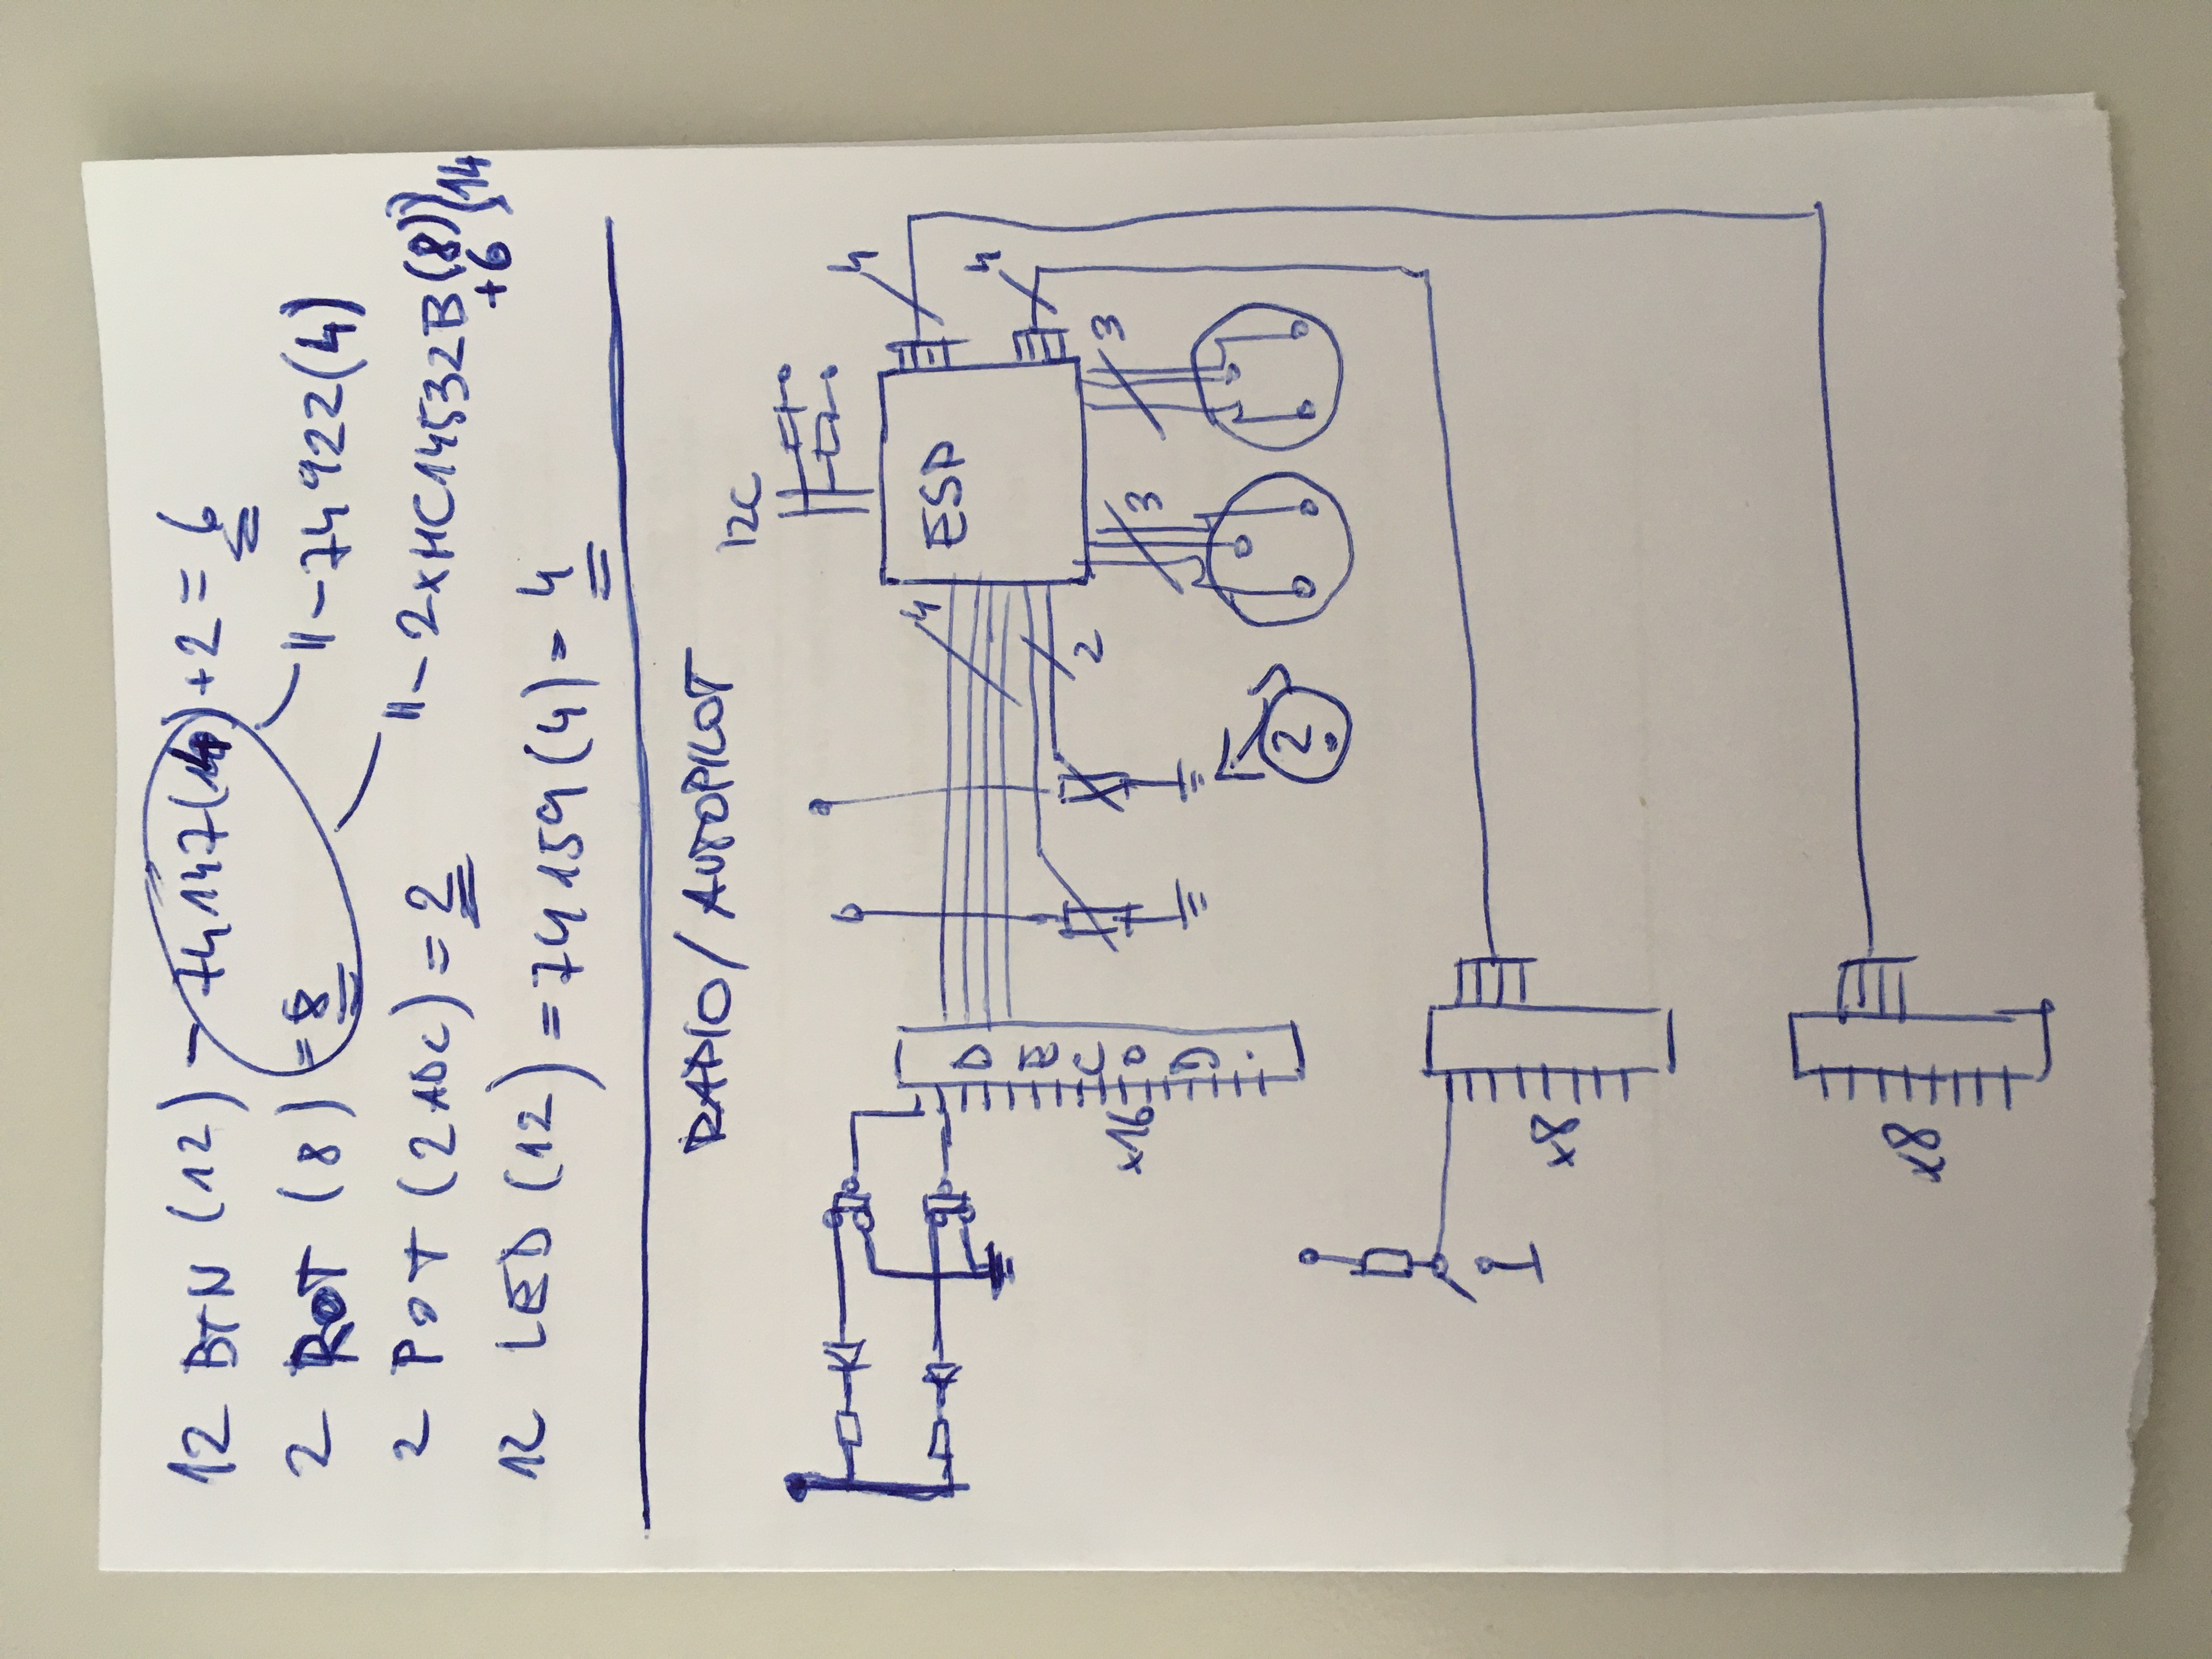 12 BTN (12) - 74147(4) + 2 = 6
2 ROT (8) = 8
"-74922(4)
2 POT (2ADC) = 2
"-2xHC14532B(8)
+6
14
12 LED (12) = 74159(4) = 4
RADIO/AUTOPILOT
I2C
4
4
ESP
4
2
3
3
DECOD.
x16
2
x8
x8